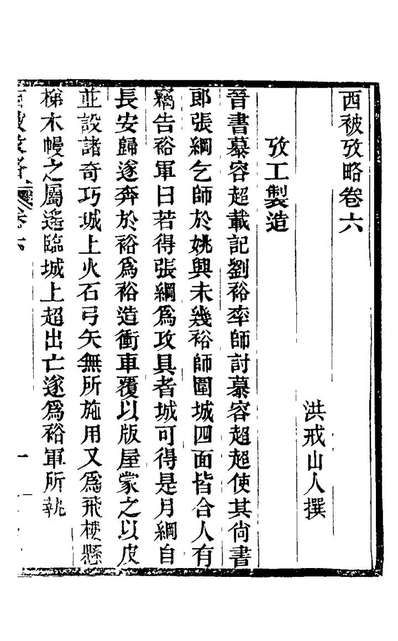 西被攷略卷六
洪戒山人撰
攷工製造
晉書慕容超載記劉裕率師討慕容超超使其尚書
郎張綱乞師於姚興未幾裕師圍城四面皆合人有
竊告裕軍曰若得張綱爲攻具者城可得是月綱自
長安歸遂奔於裕爲裕造衝車覆以版屋蒙之以皮
並設諸奇巧城上火石弓矢無所施用又爲飛梗懸
梯木幔之屬遙臨城上超出亡遂爲裕軍所執
西被攷略 卷六 一